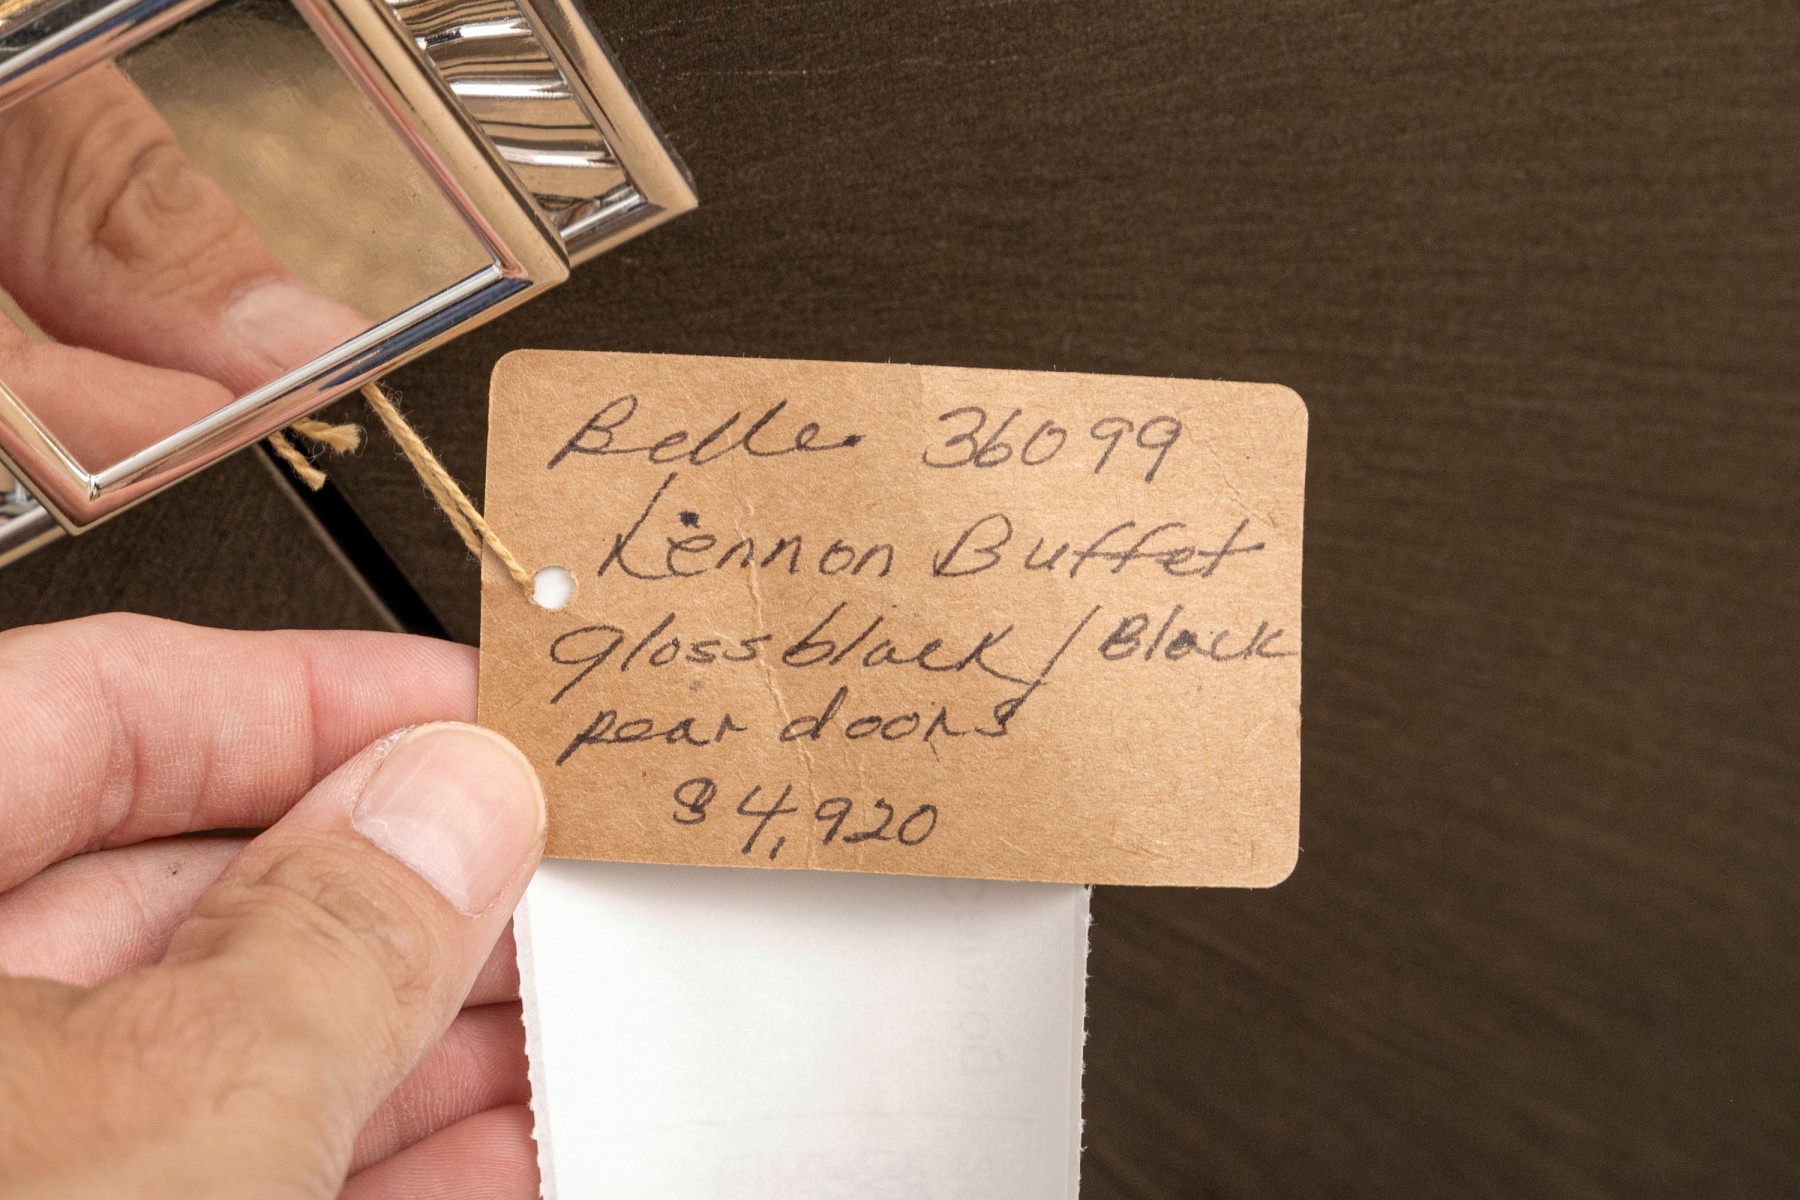 Belle 36099
Lennon Buffet
glossblack / Black
pear doors
$4,920